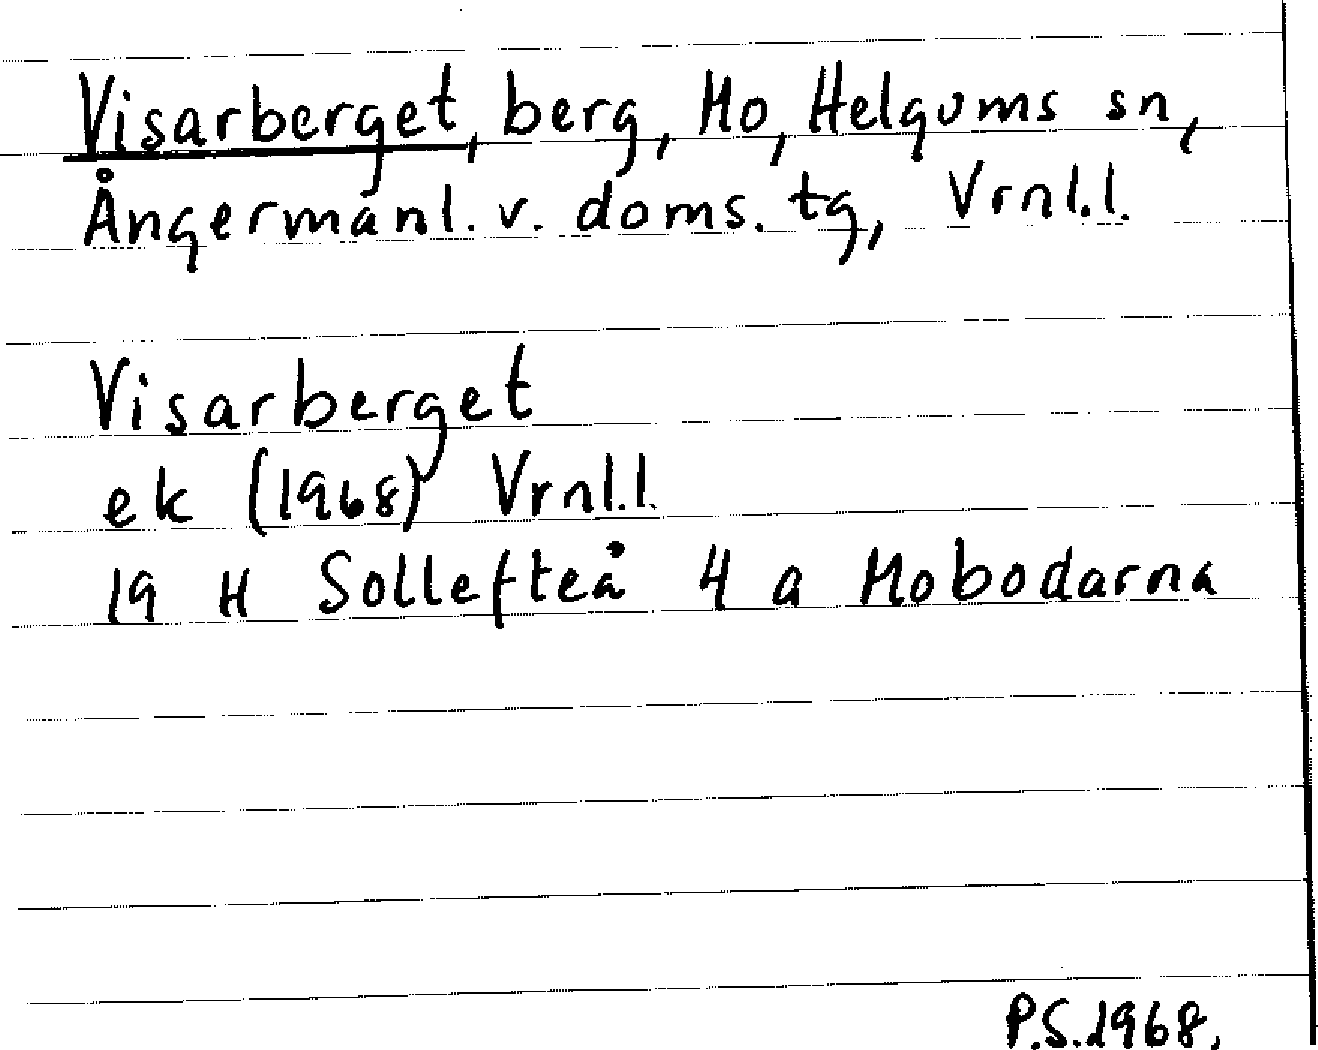 Visarberget, berg, Mo, Helgums sn,
Ångermanl. v. doms. tg, Vrnl.l.
Visarberget
ek (1968) Vrnl.l.
19 H Sollefteå 4 a Mobodarna
P.S.1968.